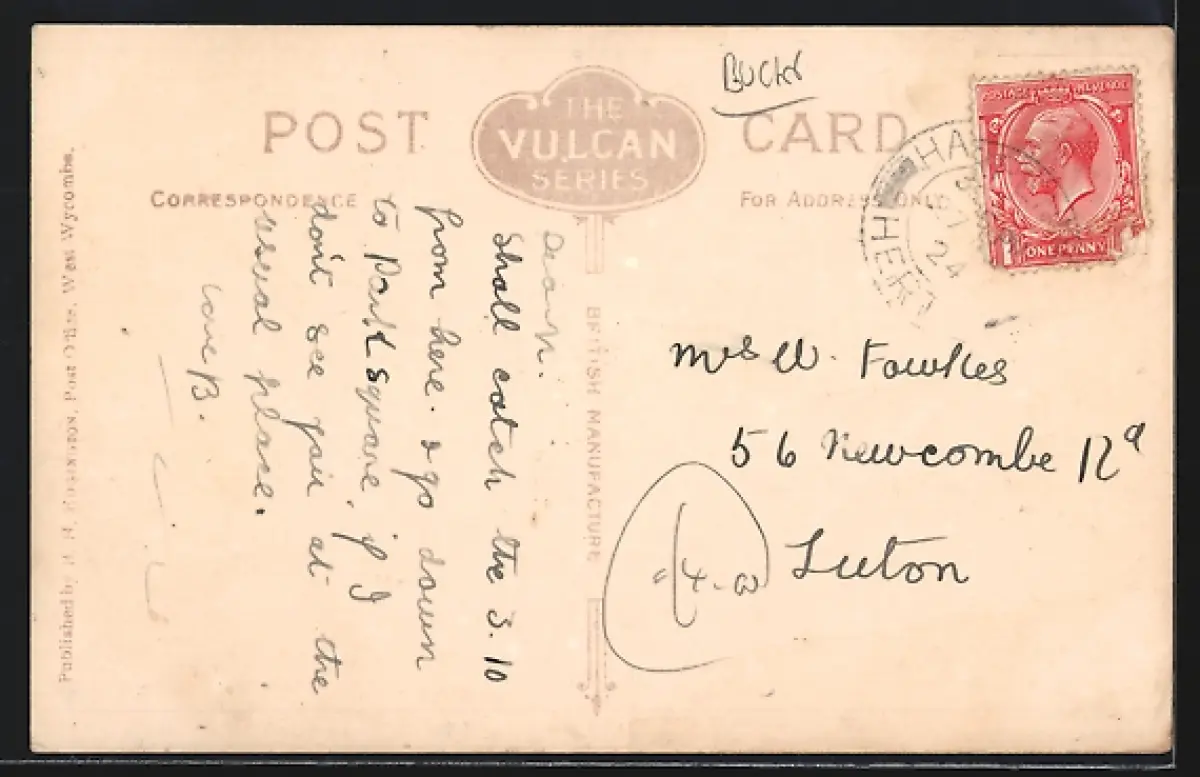 Bucks
POST
THE
VULCAN
SERIES
CARD
CORRESPONDENCE
FOR ADDRESS ONLY
POSTAGE REVENUE
ONE PENNY
HA
HERT
24
Dear M.
Shall catch the 3.10
from here. & go down
to Park Square, if I
don't see you at the
usual place.
Love B.
Mrs W. Fowkes
56 Newcombe Rd
Luton
BRITISH MANUFACTURE
Published by Post Office, West Wycombe.